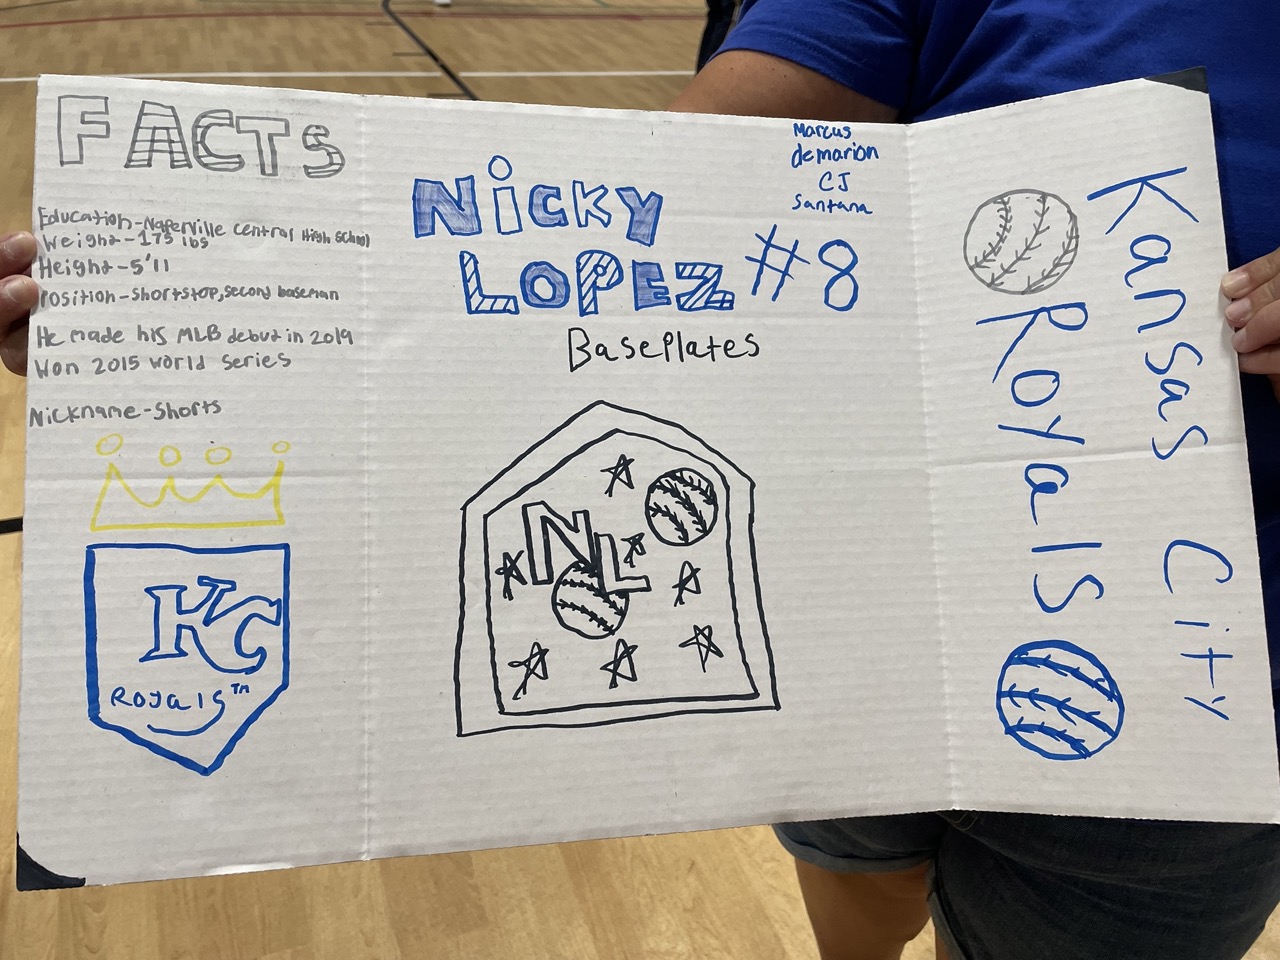 FACTS
Education-Naperville Central High School
Weight-175 lbs
Height-5'11
Position-shortstop, second baseman
He made his MLB debut in 2019
Won 2015 world series
Nickname-Shorts
KC
Royals™
NiCKY
LOPEZ #8
BasePlates
NL
Marcus
demarion
CJ
Santana
Kansas City
Royals